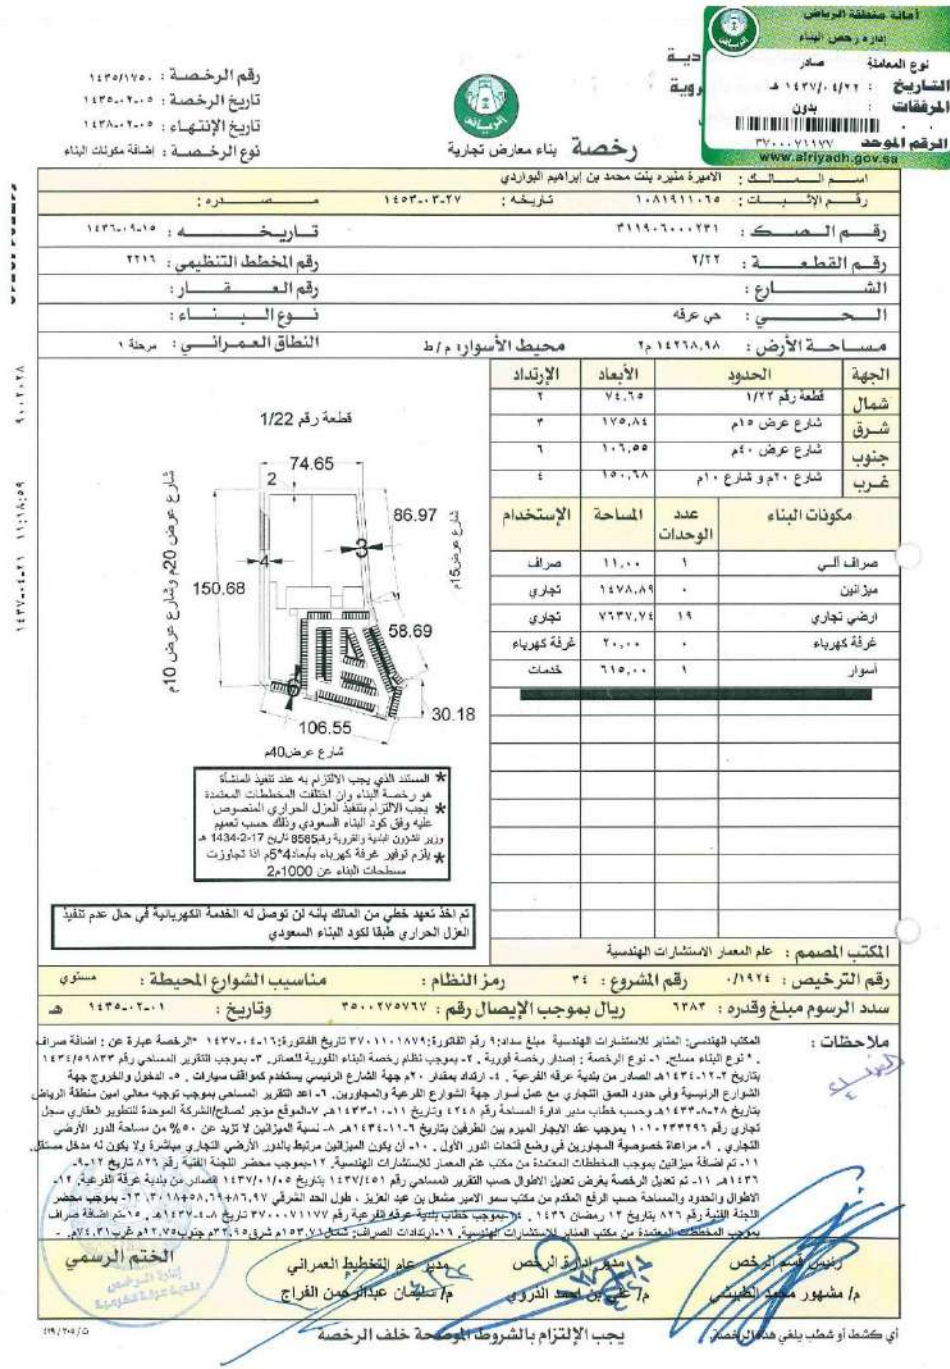 أمانة منطقة الرياض
إدارة رخص البناء
نوع المعاملة صادر
التاريخ : ١٤٣٧/٠٤/٢٢ هـ
المرفقات : بدون
الرقم الموحد ٣٧٠٠٠٧١١٧٧
www.alriyadh.gov.sa
دية
روية
رخصة بناء معارض تجارية
رقم الرخصة : ١٤٣٥/١٧٥٠
تاريخ الرخصة : ١٤٣٥-٠٢-٠٥
تاريخ الإنتهاء : ١٤٣٨-٠٢-٠٥
نوع الرخصة : اضافة مكونات البناء
اسم المالك : الاميرة منيره بنت محمد بن إبراهيم البواردي
رقم الإثبات : ١٠٨١٩١١٠٦٥ تاريخه : ١٤٥٣-٠٣-٢٧ مصدره :
رقم الصك : ٣١١٩٠٦٠٠٠٢٣١ تاريخه : ١٤٣٦-٠٩-١٥
رقم القطعة : ٢/٢٢ رقم المخطط التنظيمي : ٢٢١٦
الشارع : رقم العقار :
الحي : حي عرقه نوع البناء :
مساحة الأرض : ١٤٢٦٨,٩٨ م٢ محيط الأسوار: م/ط النطاق العمراني : مرحلة ١
الجهة الحدود الأبعاد الإرتداد
شمال قطعة رقم ١/٢٢ ٧٤,٦٥ ٢
شرق شارع عرض ١٥م ١٧٥,٨٤ ٣
جنوب شارع عرض ٤٠م ١٠٦,٥٥ ٦
غرب شارع ٢٠م و شارع ١٠م ١٥٠,٦٨ ٤
مكونات البناء عدد الوحدات المساحة الإستخدام
صراف ألي ١ ١١,٠٠ صراف
ميزانين ٠ ١٤٧٨,٨٩ تجاري
ارضي تجاري ١٩ ٧٦٣٧,٧٤ تجاري
غرفة كهرباء ٠ ٢٠,٠٠ غرفة كهرباء
أسوار ١ ٦١٥,٠٠ خدمات
قطعة رقم 1/22
74.65
2
86.97
شارع عرض 15م
3
4
150.68
شارع عرض 20م وشارع عرض 10م
58.69
6
30.18
106.55
شارع عرض40م
* المستند الذي يجب الالتزام به عند تنفيذ المنشأة
هو رخصة البناء وان اختلفت المخططات المعتمدة
* يجب الالتزام بتنفيذ العزل الحراري المنصوص
عليه وفق كود البناء السعودي وذلك حسب تعميم
وزير الشؤون البلدية والقروية رقم8585 تاريخ 17-2-1434 هـ
* يلزم توفير غرفة كهرباء بأبعاد4*5م اذا تجاوزت
مسطحات البناء عن 1000م2
تم اخذ تعهد خطي من المالك بأنه لن توصل له الخدمة الكهربائية في حال عدم تنفيذ
العزل الحراري طبقا لكود البناء السعودي
المكتب المصمم : علم المعمار الاستشارات الهندسية
رقم الترخيص : ٠/١٩٢٤ رقم المشروع : ٣٤ رمز النظام : مناسيب الشوارع المحيطة : مستوي
سدد الرسوم مبلغ وقدره : ٦٣٨٣ ريال بموجب الإيصال رقم : ٣٥٠٠٢٧٥٧٦٧ وتاريخ : ١٤٣٥-٠٢-٠١ هـ
ملاحظات : المكتب الهندسي: المنابر للاستشارات الهندسية مبلغ سداد:٩ رقم الفاتورة:٣٧٠١١٠١٨٧٩ تاريخ الفاتورة:١٦-٠٤-١٤٣٧ *الرخصة عبارة عن : اضافة صراف
. * نوع البناء مسلح. ١- نوع الرخصة : إصدار رخصة فورية . ٢- بموجب نظام رخصة البناء الفورية للعمائر. ٣- بموجب التقرير المساحي رقم ١٤٣٤/٥٩٨٣٣
بتاريخ ٢-١٢-١٤٣٤هـ الصادر من بلدية عرقه الفرعية . ٤- ارتداد بمقدار ٢٠م جهة الشارع الرئيسي يستخدم كمواقف سيارات . ٥- الدخول والخروج جهة
الشوارع الرئيسية وفي حدود العمق التجاري مع عمل أسوار جهة الشوارع الفرعية والمجاورين. ٦- اعد التقرير المساحي بموجب توجيه معالي امين منطقة الرياض
بتاريخ ٢٨-٨-١٤٣٣هـ وحسب خطاب مدير ادارة المساحة رقم ٤٢٤٨ وتاريخ ١١-١٠-١٤٣٣هـ. ٧-الموقع مؤجر لصالح/الشركة الموحدة للتطوير العقاري سجل
تجاري رقم ١٠١٠٢٣٣٢٩٦ بموجب عقد الايجار المبرم بين الطرفين بتاريخ ٦-١١-١٤٣٤هـ ٨- نسبة الميزانين لا تزيد عن ٥٠% من مساحة الدور الأرضي
التجاري .٩- مراعاة خصوصية المجاورين في وضع فتحات الدور الأول . ١٠- أن يكون الميزانين مرتبط بالدور الأرضي التجاري مباشرة ولا يكون له مدخل مستقل.
١١- تم اضافة ميزانين بموجب المخططات المعتمدة من مكتب علم المعمار للإستشارات الهندسية. ١٢-بموجب محضر اللجنة الفنية رقم ٨٢٦ تاريخ ١٢-٩-
١٤٣٦هـ ١١- تم تعديل الرخصة بغرض تعديل الاطوال حسب التقرير المساحي رقم ١٤٣٧/٤٥١ بتاريخ ١٤٣٧/٠١/٠٥ الصادر من بلدية عرقة الفرعية. ١٢-
الاطوال والحدود والمساحة حسب الرفع المقدم من مكتب سمو الامير مشعل بن عبد العزيز ، طول الحد الشرقي ٨٦,٩٧+٥٨,٦٩+٣٠,١٨. ١٣- بموجب محضر
اللجنة الفنية رقم ٨٢٦ بتاريخ ١٢ رمضان ١٤٣٦ . ١٤-بموجب خطاب بلدية عرقه الفرعية رقم ٣٧٠٠٠٧١١٧٧ تاريخ ٨-٤-١٤٣٧هـ . ١٥-تم اضافة صراف
بموجب المخططات المعتمدة من مكتب المنابر للاستشارات الهندسية. ١٦-ارتدادات الصراف: شمال١٥٣,٧١م شرق٣٢,٩٥م جنوب١٢,٧٥م غرب٧٤,٣١م. -
رئيس قسم الرخص مدير إدارة الرخص مدير عام التخطيط العمراني الختم الرسمي
م/ مشهور محمد م/ علي بن احمد الذروي م/ سليمان عبدالرحمن الفراج
أي كشط أو شطب يلغي هذه الرخصة يجب الإلتزام بالشروط الموضحة خلف الرخصة
١٤٣٧-٠٤-٢١ ١١:١٨:٥٩ ٩٠٠٢٠٢٨